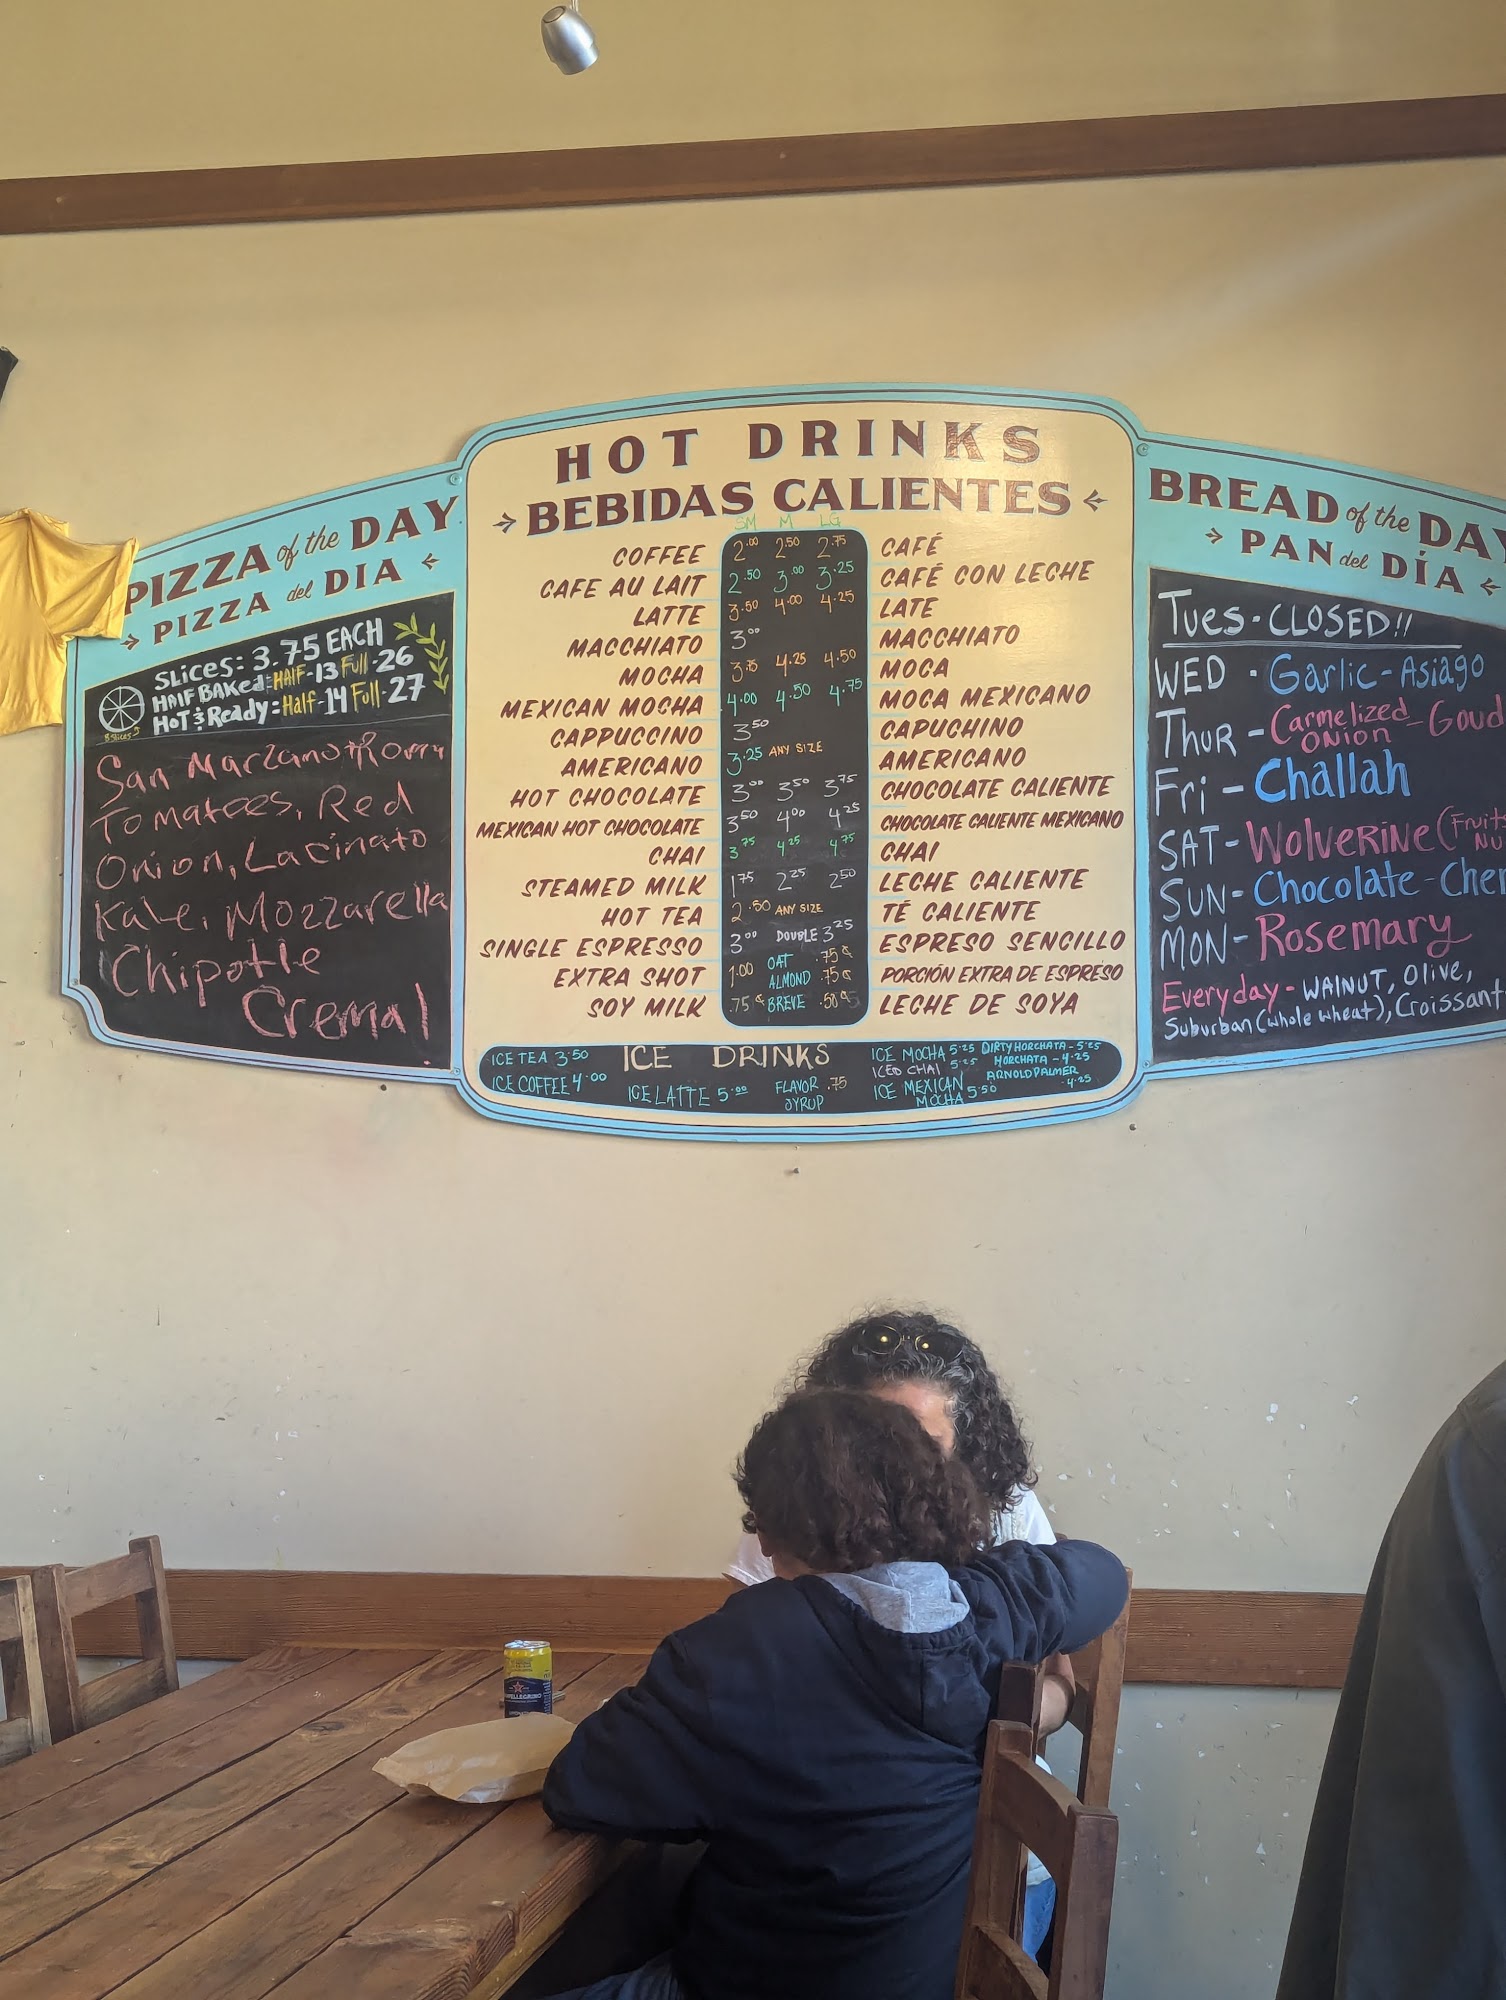 PIZZA of the DAY
PIZZA del DIA
SLICES: 3.75 EACH
HALF BAKED: HALF-13 Full-26
HOT & Ready: Half-14 Full-27
8 Slices
San Marzano + Roma
Tomatoes, Red
Onion, Lacinato
Kale, Mozzarella
Chipotle
Crema!
HOT DRINKS
BEBIDAS CALIENTES
SM M LG
COFFEE 2.00 2.50 2.75 CAFÉ
CAFE AU LAIT 2.50 3.00 3.25 CAFÉ CON LECHE
LATTE 3.50 4.00 4.25 LATE
MACCHIATO 3.00 MACCHIATO
MOCHA 3.75 4.25 4.50 MOCA
MEXICAN MOCHA 4.00 4.50 4.75 MOCA MEXICANO
CAPPUCCINO 3.50 CAPUCHINO
AMERICANO 3.25 ANY SIZE AMERICANO
HOT CHOCOLATE 3.00 3.50 3.75 CHOCOLATE CALIENTE
MEXICAN HOT CHOCOLATE 3.50 4.00 4.25 CHOCOLATE CALIENTE MEXICANO
CHAI 3.75 4.25 4.75 CHAI
STEAMED MILK 1.75 2.25 2.50 LECHE CALIENTE
HOT TEA 2.50 ANY SIZE TÉ CALIENTE
SINGLE ESPRESSO 3.00 DOUBLE 3.25 ESPRESO SENCILLO
EXTRA SHOT 1.00 OAT .75¢ ALMOND .75¢ PORCIÓN EXTRA DE ESPRESO
SOY MILK .75¢ BREVE .50¢ LECHE DE SOYA
ICE DRINKS
ICE TEA 3.50
ICE COFFEE 4.00
ICE LATTE 5.00
FLAVOR SYRUP .75
ICE MOCHA 5.25
ICED CHAI 5.25
ICE MEXICAN MOCHA 5.50
DIRTY HORCHATA - 5.25
HORCHATA - 4.25
ARNOLD PALMER - 4.25
BREAD of the DAY
PAN del DÍA
Tues - CLOSED!!
WED - Garlic-Asiago
THUR - Carmelized Onion - Goud
Fri - Challah
SAT - WOLVERINE (Fruits Nu
SUN - Chocolate-Cher
MON - Rosemary
Everyday - WALNUT, Olive,
Suburban (whole wheat), Croissant